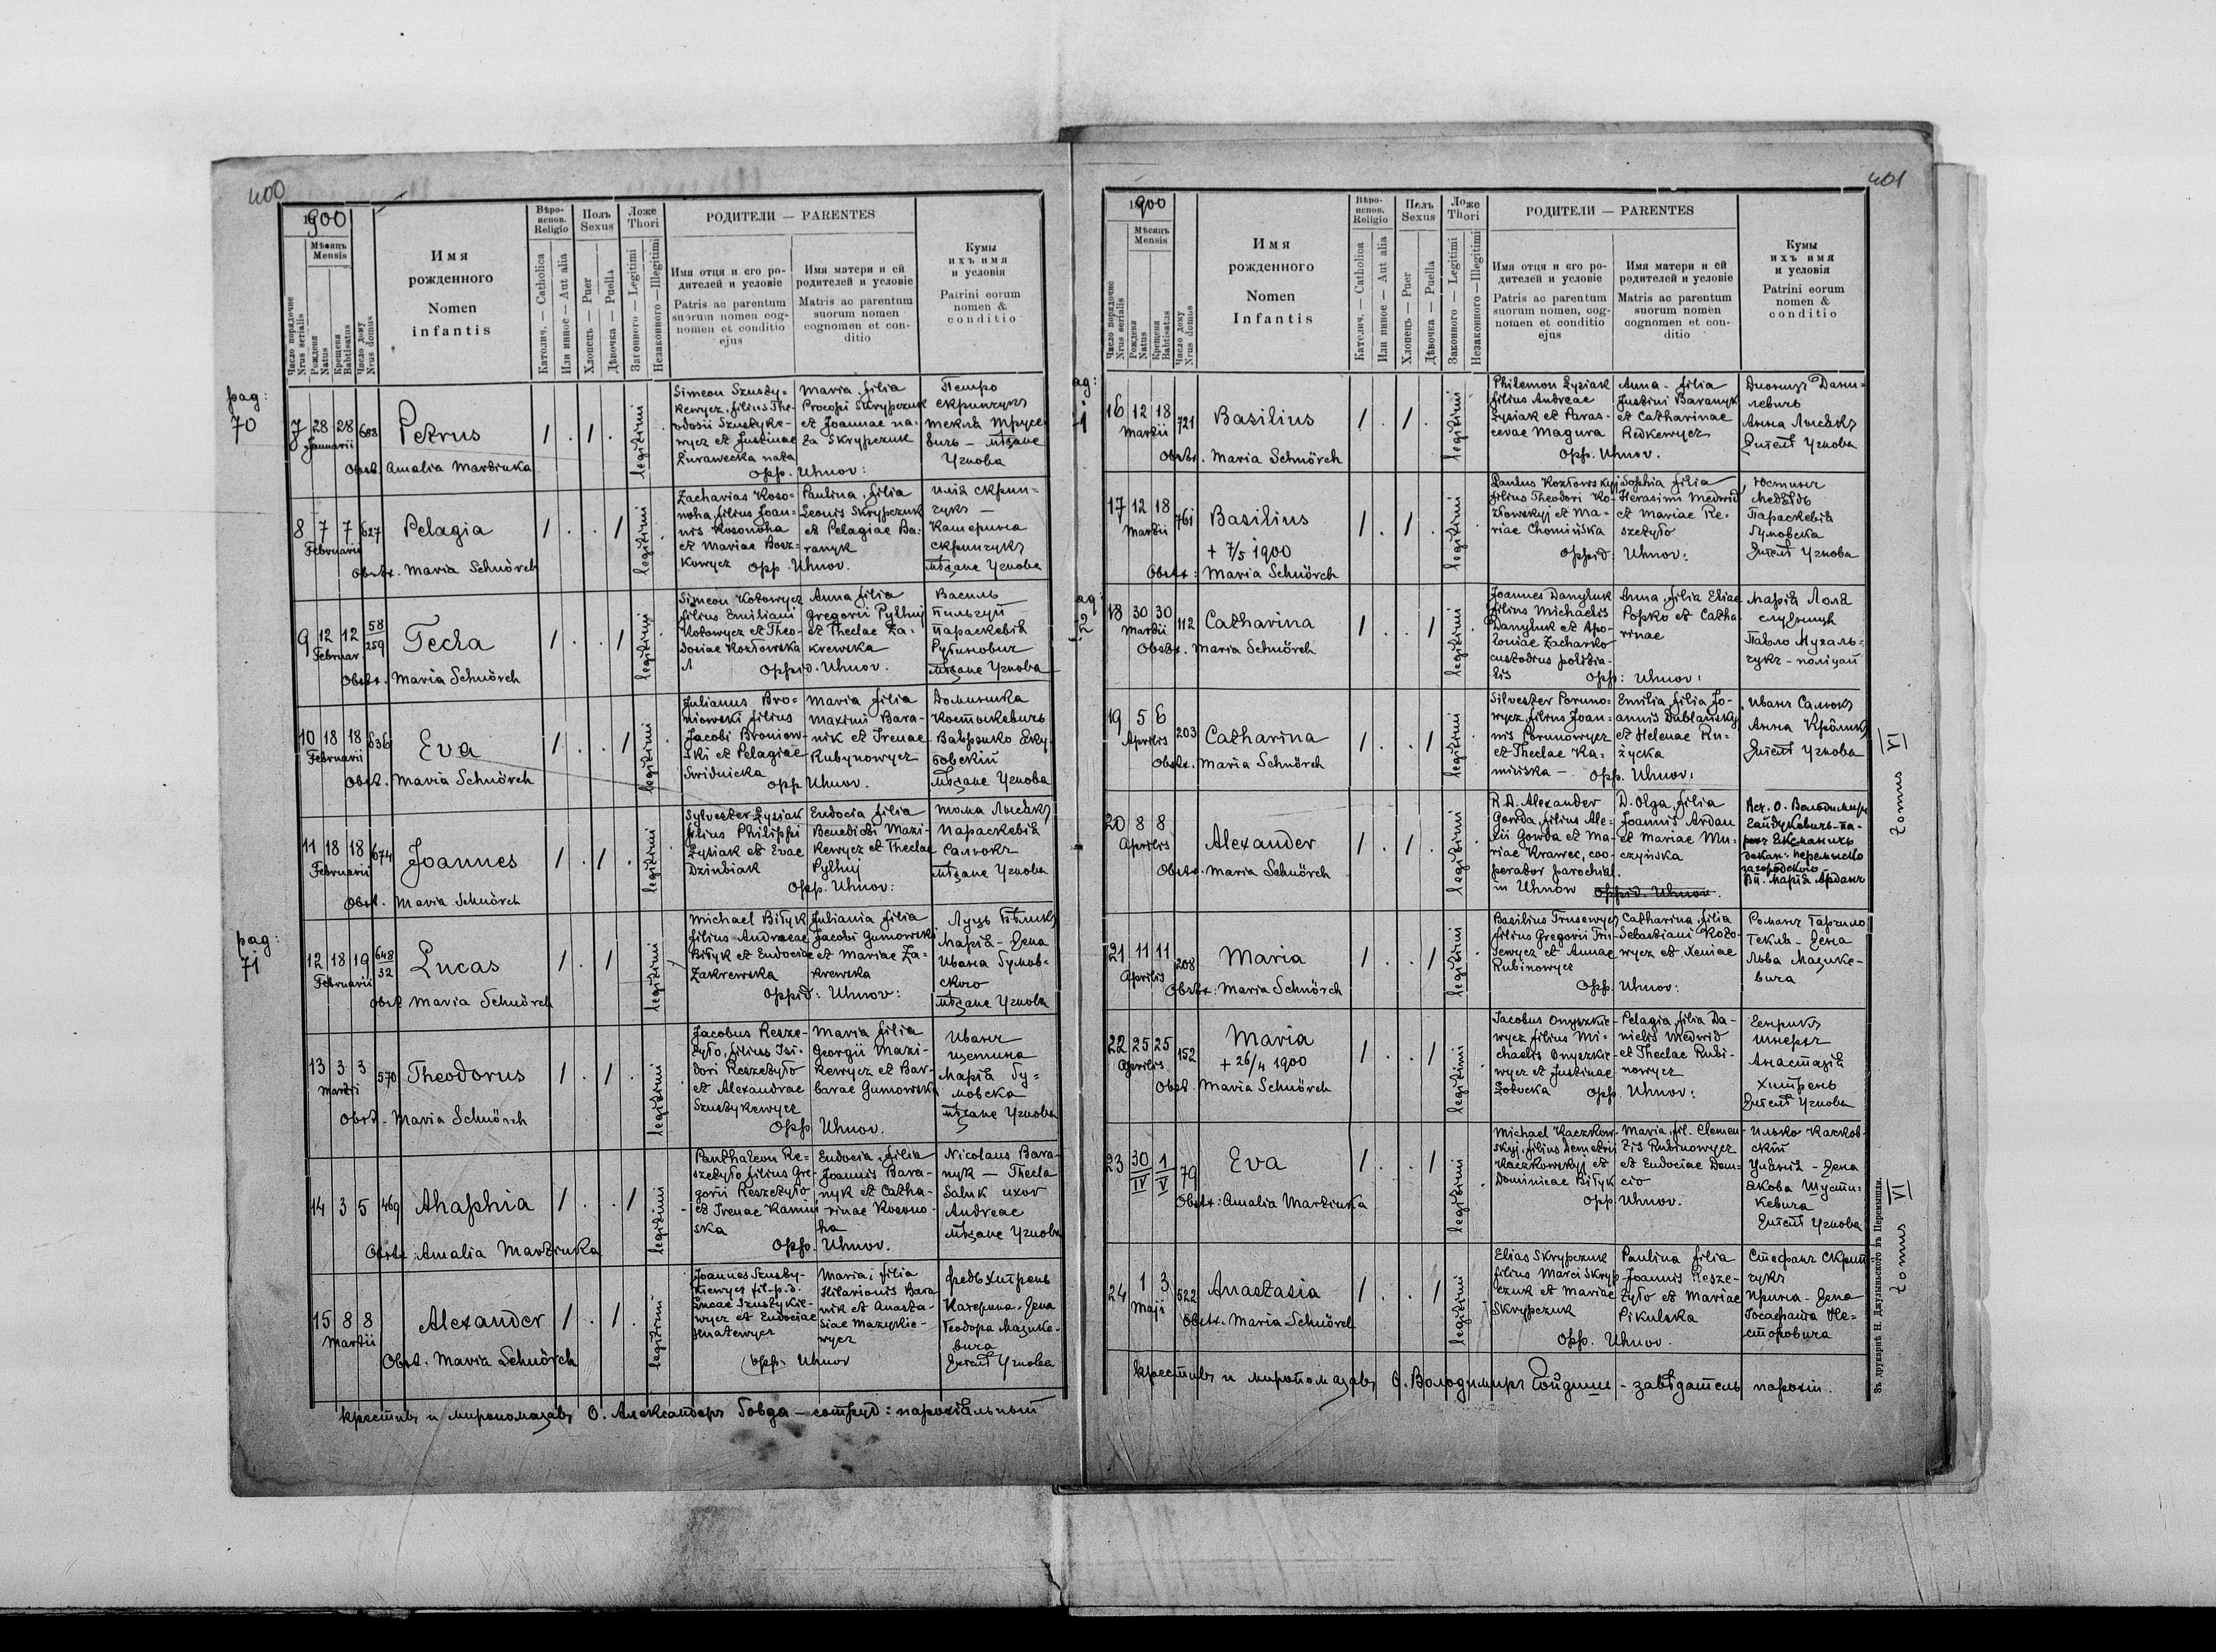 400
1900
Мѣсяць
Mensis
Число порядочне
Nrus serialis
Рожденя
Natus
Крещеня
Babtisatus
Число дому
Nrus domus
Имя
рожденного
Nomen
infantis
Вѣро-
испов.
Religio
Католич. — Catholica
Или инное — Aut alia
Полъ
Sexus
Хлопець — Puer
Дѣвочка — Puella
Ложе
Thori
Законного — Legitimi
Незаконного — Illegitimi
РОДИТЕЛИ — PARENTES
Имя отця и его ро-
дителей и условіе
Patris ac parentum
suorum nomen cog-
nomen et conditio
ejus
Имя матери и ей
родителей и условіе
Matris ac parentum
suorum nomen
cognomen et con-
ditio
Кумы
ихъ имя
и условія
Patrini eorum
nomen &
conditio
pag:
70
7 28 28 688 Petrus 1 . 1 . legitimi
Januarii
Obst. Amalia Martinka
Simeon Szusty-
kewycz, filius The-
odosii Szustyke-
wycz et Justinae
Żurawecka nata
Maria, filia
Procopi Skrypczuk
et Joannae na-
ta Skrypczuk
Opp. Uhnov:
Петро
скрипчукъ
текла Трусе
вичь — мѣщане
Угнова
8 7 7 627 Pelagia 1 . . 1 legitimi
Februarii
Obstt. Maria Schnörch
Zacharias Koso-
noha, filius Joan-
nis Kosonoha
et Mariae Borz-
kowycz
Paulina, filia
Leonis Skrypczuk
et Pelagiae Ba-
ranyk
Opp. Uhnov.
илія скрип-
чукъ —
Катерина
скрипчукъ
мѣщане Угнова
9 12 12 58/259 Tecla 1 . . 1 legitimi
Februar.
Obstt. Maria Schnörch
Simeon Kotowycz
filius Emiliani
Kotowycz et Theo-
dosiae Kozłowska
Anna filia
Gregorii Pylhuj
et Theclae Za-
krewska
Oppid. Uhnov.
Василь
Пильгуй
Параскевія
Рубиновичь
мѣщане Угнова
10 18 18 636 Eva 1 . . 1 legitimi
Februarii
Obst. Maria Schnörch
Julianus Bro-
niowski filius
Jacobi Broniow-
ski et Pelagiae
Swidnicka
Maria filia
Maximi Bara-
nik et Irenae
Rubynowycz
Opp Uhnov.
Доминика
Костюкевичь
Гаврилко Яку-
бовскій
мѣщане Угнова
11 18 18 674 Joannes 1 . 1 . legitimi
Februarii
Obst. Maria Schnörch
Sylvester Łysiak
filius Philippi
Łysiak et Evae
Dziubiak
Eudocia filia
Benedicti Mazi-
kewycz et Theclae
Pylhuj
Opp. Uhnov:
тома Лысакъ
Параскевія
Салюкъ
мѣщане Угнова
pag:
71
12 18 19 648/32 Lucas 1 . 1 legitimi
Februarii
Obst Maria Schnörch
Michael Biłyk
filius Andreae
Biłyk et Eudociae
Zakrewska
Juliania filia
Jacobi Gumowski
et Mariae Za-
krewska
Oppid: Uhnov:
Луць Бѣликъ
Марія - жена
Ивана Гумов-
ского
мѣщане Угнова
13 3 3 570 Theodorus 1 . 1 . legitimi
Martii
Obst. Maria Schnörch
Jacobus Resze-
tyło, filius Isi-
dori Reszetyło
et Alexandrae
Szustykewycz
Maria filia
Georgii Mazi-
kewycz et Bar-
barae Gumowska
Opp. Uhnov.
Иванъ
щетина
Марія Гу-
мовска
мѣщане Угнова
14 3 5 469 Ahaphia 1 . . 1 legitimi
Obstt: Amalia Martinka
Panthaleon Re-
szetyło filius Gre-
gorii Reszetyło
et Irenae Kamin-
ska
Eudocia, filia
Joannis Bara-
nyk et Catha-
rinae Kosono-
ha
Opp. Uhnov.
Nicolaus Bara-
nyk — Thecla
Saluk uxor
Andreae
мѣщане Угнова
15 8 8 Alexander 1 . 1 . legitimi
Martii
Obst. Maria Schnörch
Joannes Szusty-
kiewycz fil. p.d.
Lucae Szustykie-
wycz et Eudociae
Hnatewycz
Maria, filia
Hilarionis Bara-
nik et Anasta-
siae Mazykie-
wycz
Opp. Uhnov
федь хитрень
Катерина, жена
Теодора Мазике-
вича
жители Угнова
крестивъ и миропомазавъ О. Александеръ Говда — сотруд: парохіальный
401
1900
Мѣсяць
Mensis
Число порядочне
Nrus serialis
Рожденя
Natus
Крещеня
Babtisatus
Число дому
Nrus domus
Имя
рожденного
Nomen
Infantis
Вѣро-
испов.
Religio
Католич. — Catholica
Или инное — Aut alia
Полъ
Sexus
Хлопець — Puer
Дѣвочка — Puella
Ложе
Thori
Законного — Legitimi
Незаконного — Illegitimi
РОДИТЕЛИ — PARENTES
Имя отця и его ро-
дителей и условіе
Patris ac parentum
suorum nomen, cog-
nomen et conditio
ejus
Имя матери и ей
родителей и условіе
Matris ac parentum
suorum nomen
cognomen et con-
ditio
Кумы
ихъ имя
и условія
Patrini eorum
nomen &
conditio
16 12 18 721 Basilius 1 . 1 . legitimi
Martii
Obstt. Maria Schnörch
Philemon Łysiak
filius Andreae
Łysiak et Paras-
cevae Magura
Anna - filia
Justini Baranyk
et Catharinae
Redkewycz
Opp. Uhnov.
Дионизъ Дани-
левичь
Анна Лысакъ
жители Угнова
17 12 18 761 Basilius 1 . 1 . legitimi
Martii
+ 7/5 1900
Obstt: Maria Schnörch
Paulus Kozłowskyj
filius Theodori Ko-
złowskyj et Ma-
riae Chomińska
Sophia filia
Herasimi Medwid
et Mariae Re-
szetyło
Oppid: Uhnov:
Юстинъ
Медвѣдь
Параскевія
Гумовска
жители Угнова
18 30 30 112 Catharina 1 . . 1 legitimi
Martii
Obstt. Maria Schnörch
Joannes Danyluk
filius Michaelis
Danyluk et Apo-
loniae Zacharko
custodius politia-
lis
Anna, filia Eliae
Popko et Catha-
rinae
Opp: Uhnov:
Марія Лола
служниця
Павло Михаль-
чукъ - поліцай
19 5 6 203 Catharina 1 . . 1 legitimi
Aprilis
Obstt. Maria Schnörch
Silvester Poruno-
wycz, filius Joan-
nis Porunowycz
et Theclae Ka-
mińska —
Emilia filia Jo-
annis Dublańskyj
et Helenae Ru-
życka
Opp. Uhnov:
Иванъ Салюкъ
Анна Кроликъ
жители Угнова
20 8 8 Alexander 1 . 1 . legitimi
Aprilis
Obstt. Maria Schnörch
R. D. Alexander
Gowda, filius Ale-
xii Gowda et Ma-
riae Krawec, coo-
perator parochial.
in Uhnow
D. Olga, filia
Joannis Ardan
et Mariae Mu-
czyńska
Oppid. Uhnov.
Всч. О. Володимиръ
Гайдукевичь - па-
декан: перемыско
загородского
Вп. Марія Арданъ
21 11 11 208 Maria 1 . . 1 legitimi
Aprilis
Obstt: Maria Schnörch
Basilius Trusewycz
filius Gregorii Tru-
sewycz et Annae
Rubinowycz
Catharina, filia
Sebastiani Koto-
wycz et Xeniae
Opp. Uhnov:
Романъ Гаргило
Текля - жена
Льва Мазике-
вича
22 25 25 152 Maria 1 . . 1 legitimi
Aprilis
+ 26/4 1900
Obst. Maria Schnörch
Jacobus Onyszkie-
wycz filius Mi-
chaelis Onyszkie-
wycz et Justinae
Żołocka
Pelagia, filia Da-
nielis Medwid
et Theclae Rubi-
nowycz
Opp. Uhnov:
Генрикъ
шнерхъ
Анастазія
Хитрень
жители Угнова
23 30/IV 1/V 79 Eva 1 . . 1 legitimi
Obstt: Amalia Martinka
Michael Kaczkow-
skyj, filius Demetrii
Kaczkowskyj et
Dominicae Biłyk
Maria, fil. Clemen-
tis Rubinowycz
et Eudociae Dem-
cio
Opp. Uhnov.
Илько Качков-
скій
Улянія - жена
Якова Шусти-
кевича
жители Угнова
24 1 3 522 Anastasia 1 . . 1 legitimi
Maji
Obstt. Maria Schnörch
Elias Skrypczuk
filius Marci Skryp-
czuk et Mariae
Skrypczuk
Paulina filia
Joannis Resze-
tyło et Mariae
Pikulska
Opp. Uhnov.
Стефанъ Скрип-
чукъ
Ирина - жена
Іосафата Не-
сторовича
крестивъ и миропомазавъ О. Володимиръ - завѣдатель парохіи.
tomus VI
tomus VI
Зъ друкарнѣ Н. Джулыньского въ Перемышли.